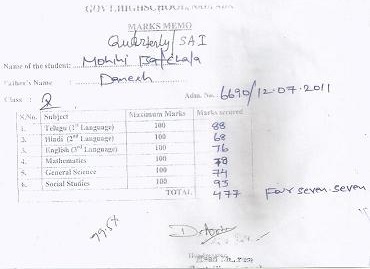 MARKS MEMO
Quarterly/SAI
Name of the student: Mohini
Father's Name : Danesh
Class : Adm. No. 6690/12-07-2011
S.No. Subject Maximum Marks Marks secured
1. Telugu (1st Language) 100 88
2. Hindi (2nd Language) 100 68
3. English (3rd Language) 100 76
4. Mathematics 100 78
5. General Science 100 74
6. Social Studies 100 93
TOTAL 477 Four seven-seven